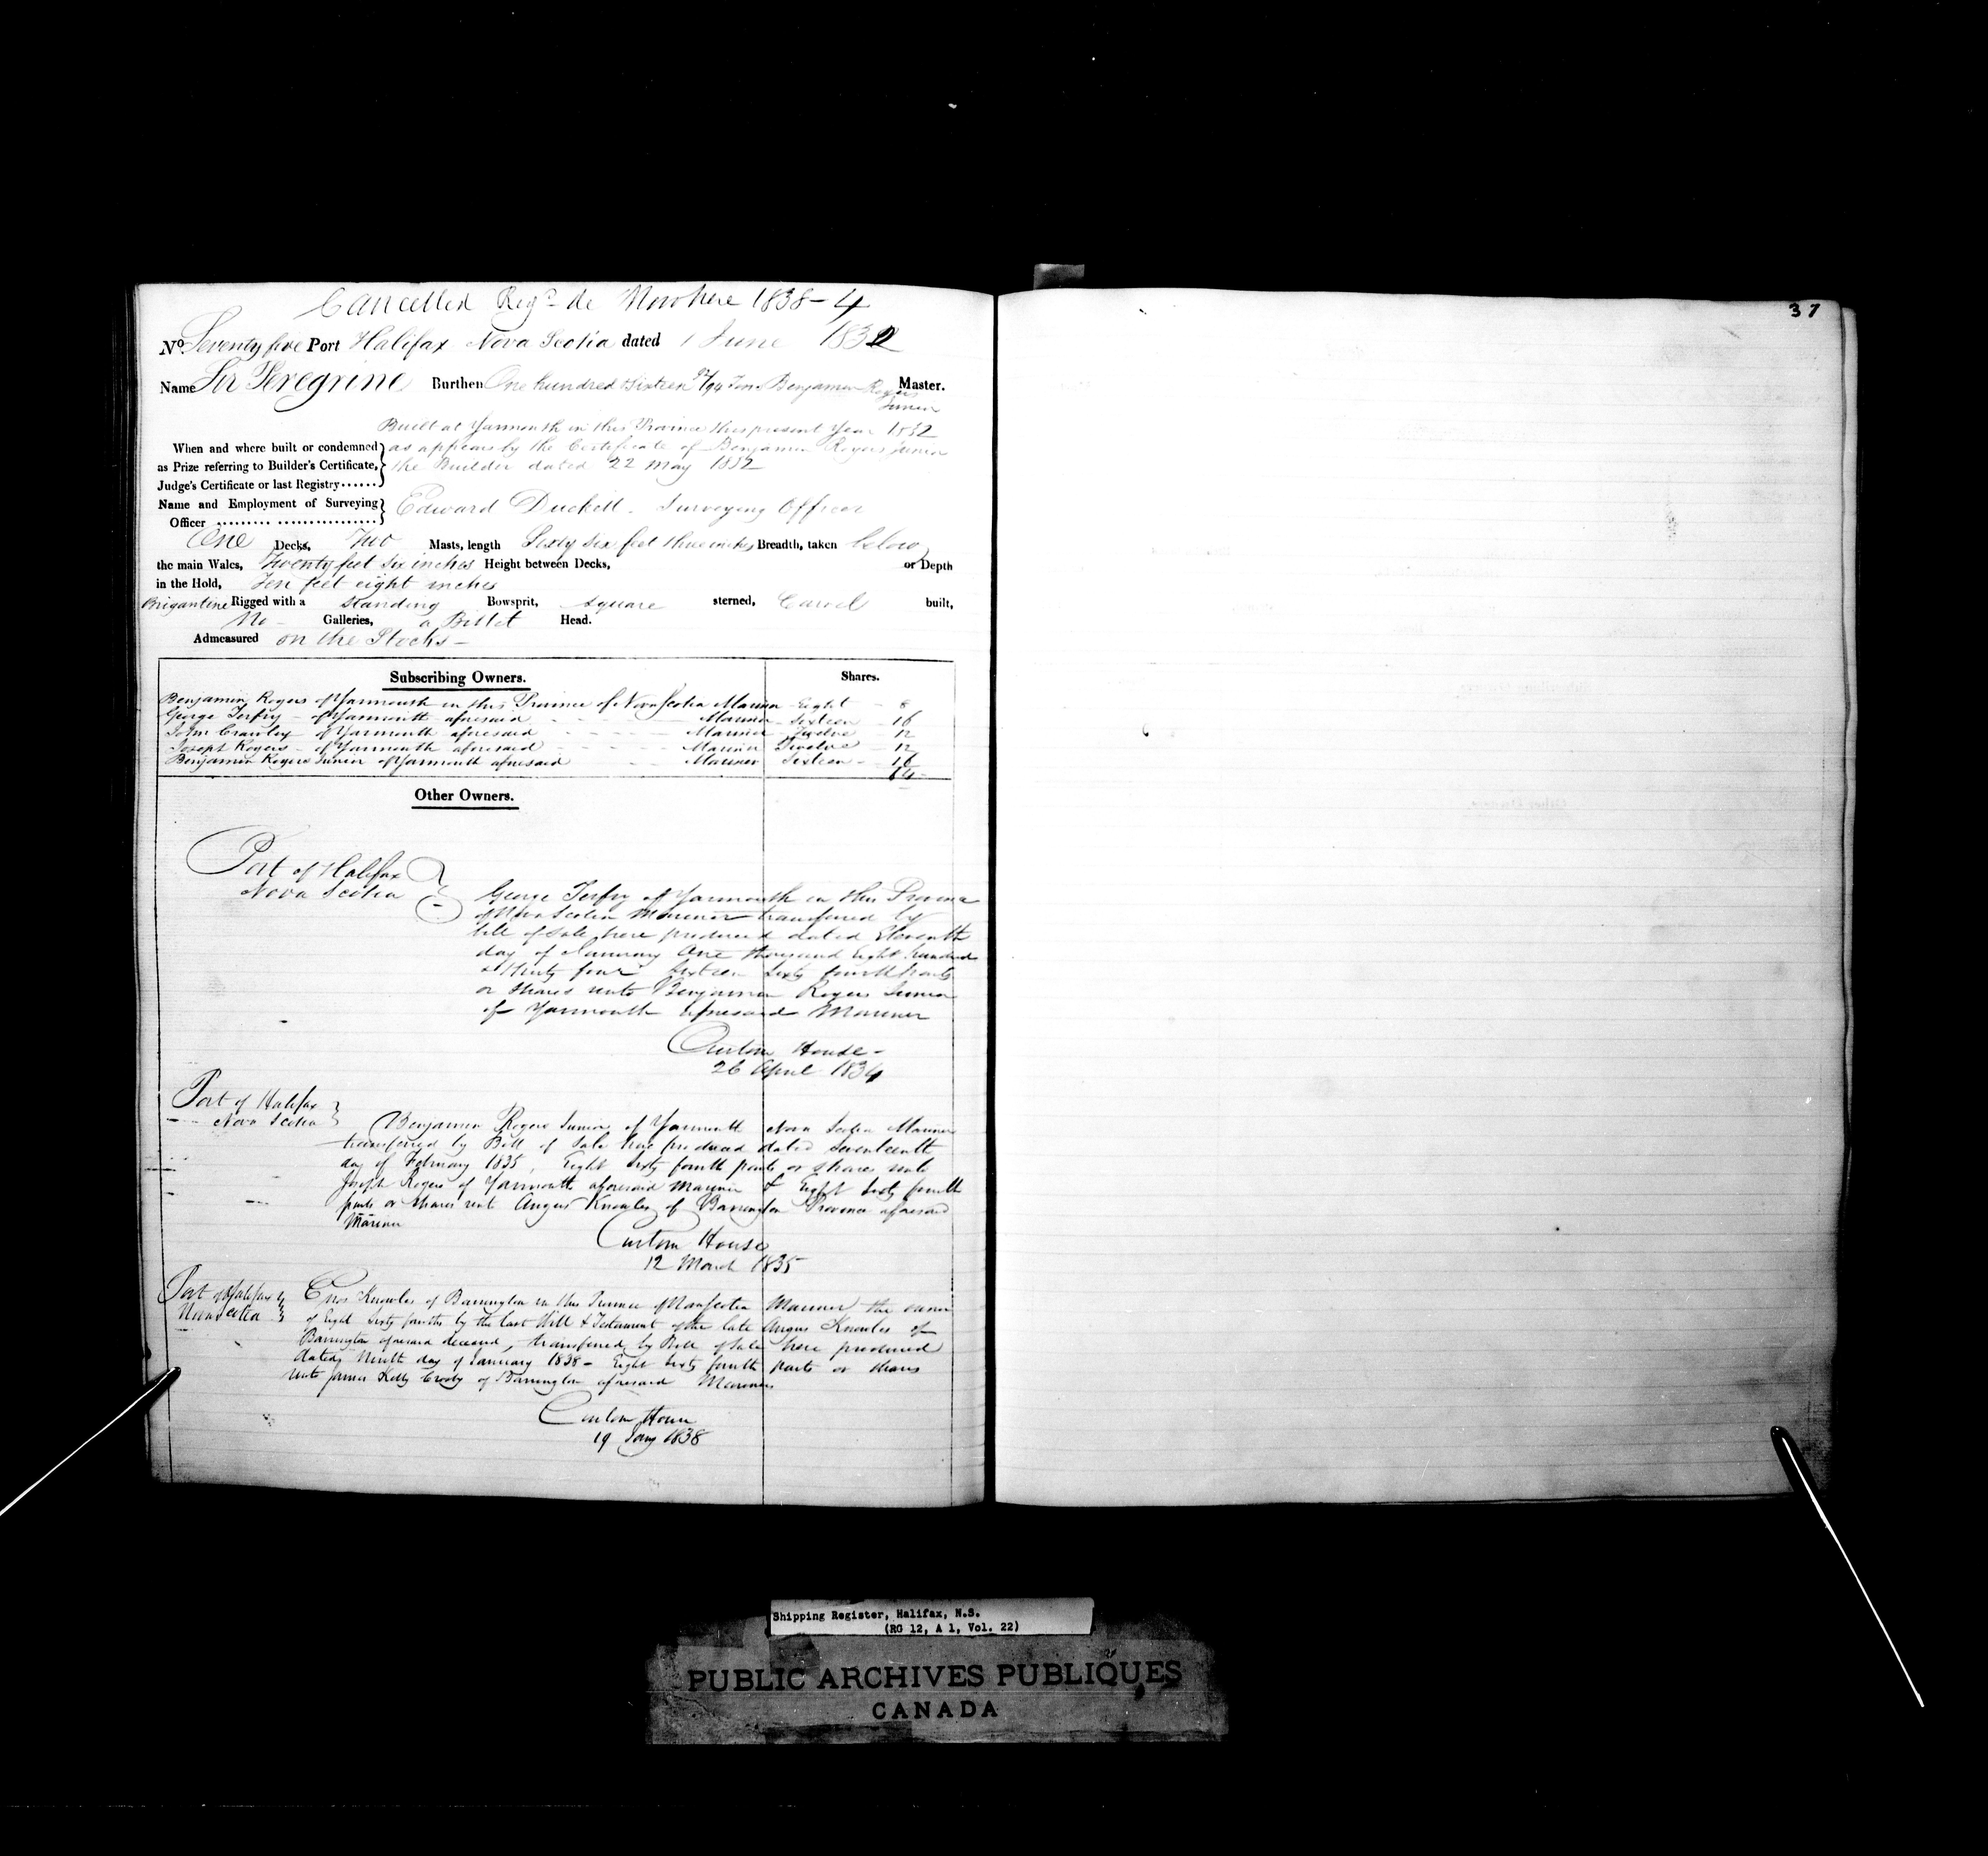 Cancelled Regd de Novo here 1838 - 4
37
No. Seventy five Port Halifax Nova Scotia dated 1 June 1832
Name Sir Peregrine Burthen One hundred & Sixteen /94 Tons Benjamin Rogers Master.
Junior
Built at Yarmouth in this Province this present Year 1832
When and where built or condemned as appears by the Certificate of Benjamin Rogers Junior
as Prize referring to Builder's Certificate, the Builder dated 22 May 1832
Judge's Certificate or last Registry......
Name and Employment of Surveying Edward Duckett. Surveying Officer
Officer ......... ................
One Decks, Two Masts, length Sixty six feet three inches Breadth, taken below
the main Wales, Twenty feet six inches Height between Decks, or Depth
in the Hold, Ten feet eight inches
Brigantine Rigged with a Standing Bowsprit, square sterned, Carvel built,
No - Galleries, a Billet Head.
Admeasured on the Stocks -
Subscribing Owners. Shares.
Benjamin Rogers of Yarmouth in this Province of Nova Scotia Mariner - Eight - 8
George Terfry - of Yarmouth aforesaid - Mariner - Sixteen - 16
John Crawley of Yarmouth aforesaid - Mariner - Twelve 12
Joseph Rogers - of Yarmouth aforesaid - Mariner Twelve 12
Benjamin Rogers Junior of Yarmouth aforesaid - Mariner Sixteen - 16
64
Other Owners.
Port of Halifax
Nova Scotia
George Terfry of Yarmouth in this Province
of Nova Scotia Mariner transferred by
bill of sale here produced dated Eleventh
day of January One thousand Eight hundred
& thirty four Sixteen Sixty fourth parts
or shares unto Benjamin Rogers Junior
of Yarmouth aforesaid Mariner
Custom House -
26 April 1834
Port of Halifax
Nova Scotia
Benjamin Rogers Junior of Yarmouth Nova Scotia Mariner
transferred by Bill of Sale here produced dated Seventeenth
day of February 1835, Eight Sixty fourth parts or shares unto
Joseph Rogers of Yarmouth aforesaid Mariner & Eight Sixty fourth
parts or shares unto Angus Knowles of Barrington Province aforesaid
Mariner
Custom House
12 March 1835
Port of Halifax
Nova Scotia
Enos Knowles of Barrington in this Province of Nova Scotia Mariner the owner
of Eight Sixty fourths by the last Will & Testament of the late Angus Knowles of
Barrington aforesaid deceased, transferred by Bill of Sale here produced
dated Ninth day of January 1838 - Eight Sixty fourth parts or shares
unto James Kelly Crosby of Barrington aforesaid Mariner
Custom House
19 Jany 1838
Shipping Register, Halifax, N.S.
(RG 12, A 1, Vol. 22)
PUBLIC ARCHIVES PUBLIQUES
CANADA